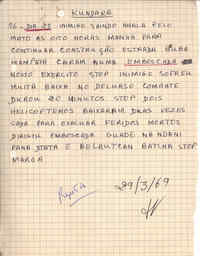 KUNDARA
16- DIA 23 INIMIGO SAINDO NHALA PELO
MATO AS OITO HORAS MANHA PARA
CONTINUAR CONSTRUÇÃO ESTRADA BUBA
MAMPATA CAIRAM NUMA EMBOSCADA
NOSSO EXERCITO STOP INIMIGO SOFREU
MUITA BAIXA NO DELHASE COMBATE
DUROU 20 MINUTOS STOP DOIS
HELICOPTEROS BAIXARAM DUAS VEZES
CADA PARA EVACUAR FERIDOS MORTOS
DIRIGIU EMBOSCADA QUADE NA NDAMI
PANA STATA E BELGUTCAN BATCHA STOP
MARGA
29/3/69